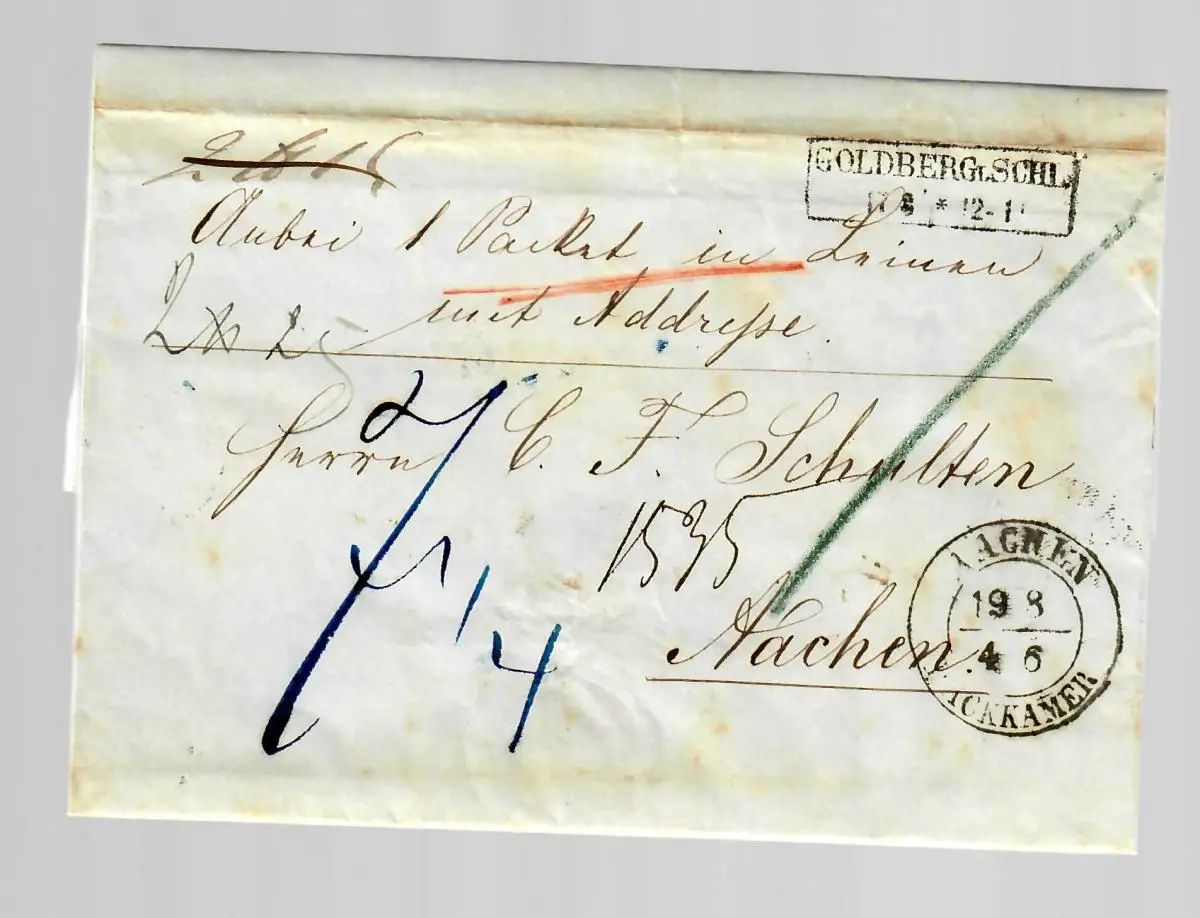 GOLDBERG i. SCHL.
17 8 * 12-1
Anbei 1 Packet in Leinen
mit Addresse.
Herrn C. F. Schulten
1535
Aachen
AACHEN
19 8
4 6
PACKKAMER
1
4